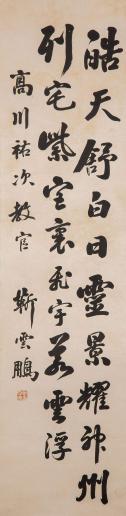 皓天舒白日靈景耀神州
列宅紫宮裏飛宇若雲浮
高川祐次教官
靳雲鵬